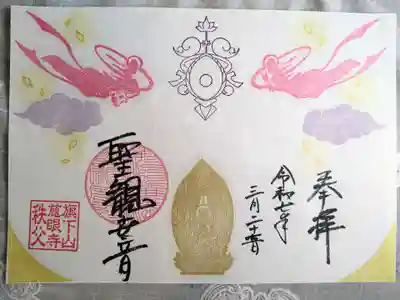 奉拝
令和年
三月二十日
聖觀世音
旗下山
慈眼寺
秩父